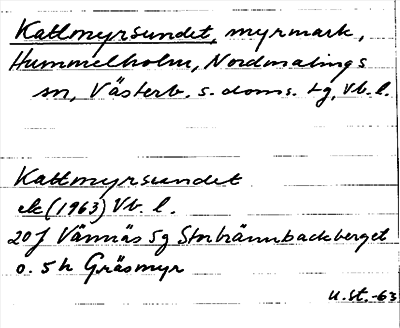 Kattmyrsundet, myrmark,
Hummelholm, Nordmalings
sn, Västerb. s. doms. tg, Vb. l.
Kattmyrsundet
ek (1963) Vb. l.
20J Vännäs 5g Storbrännbackberget
o. 5h Gräsmyr
U.St.-63